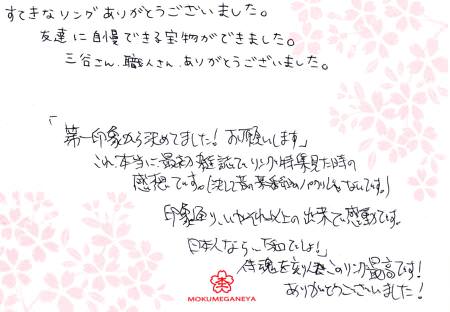 すてきなリングありがとうございました。
友達に自慢できる宝物ができました。
三谷さん、職人さん、ありがとうございました。
「第一印象から決めてました！お願いします」
これ本当に最初雑誌でリング特集見た時の
感想です。(決して昔の某番組のパクリじゃないです。)
印象通り、いやそれ以上の出来で感動です。
日本人なら、和でしょ！
侍魂を刻んだこのリング最高です！
ありがとうございました！
MOKUMEGANEYA